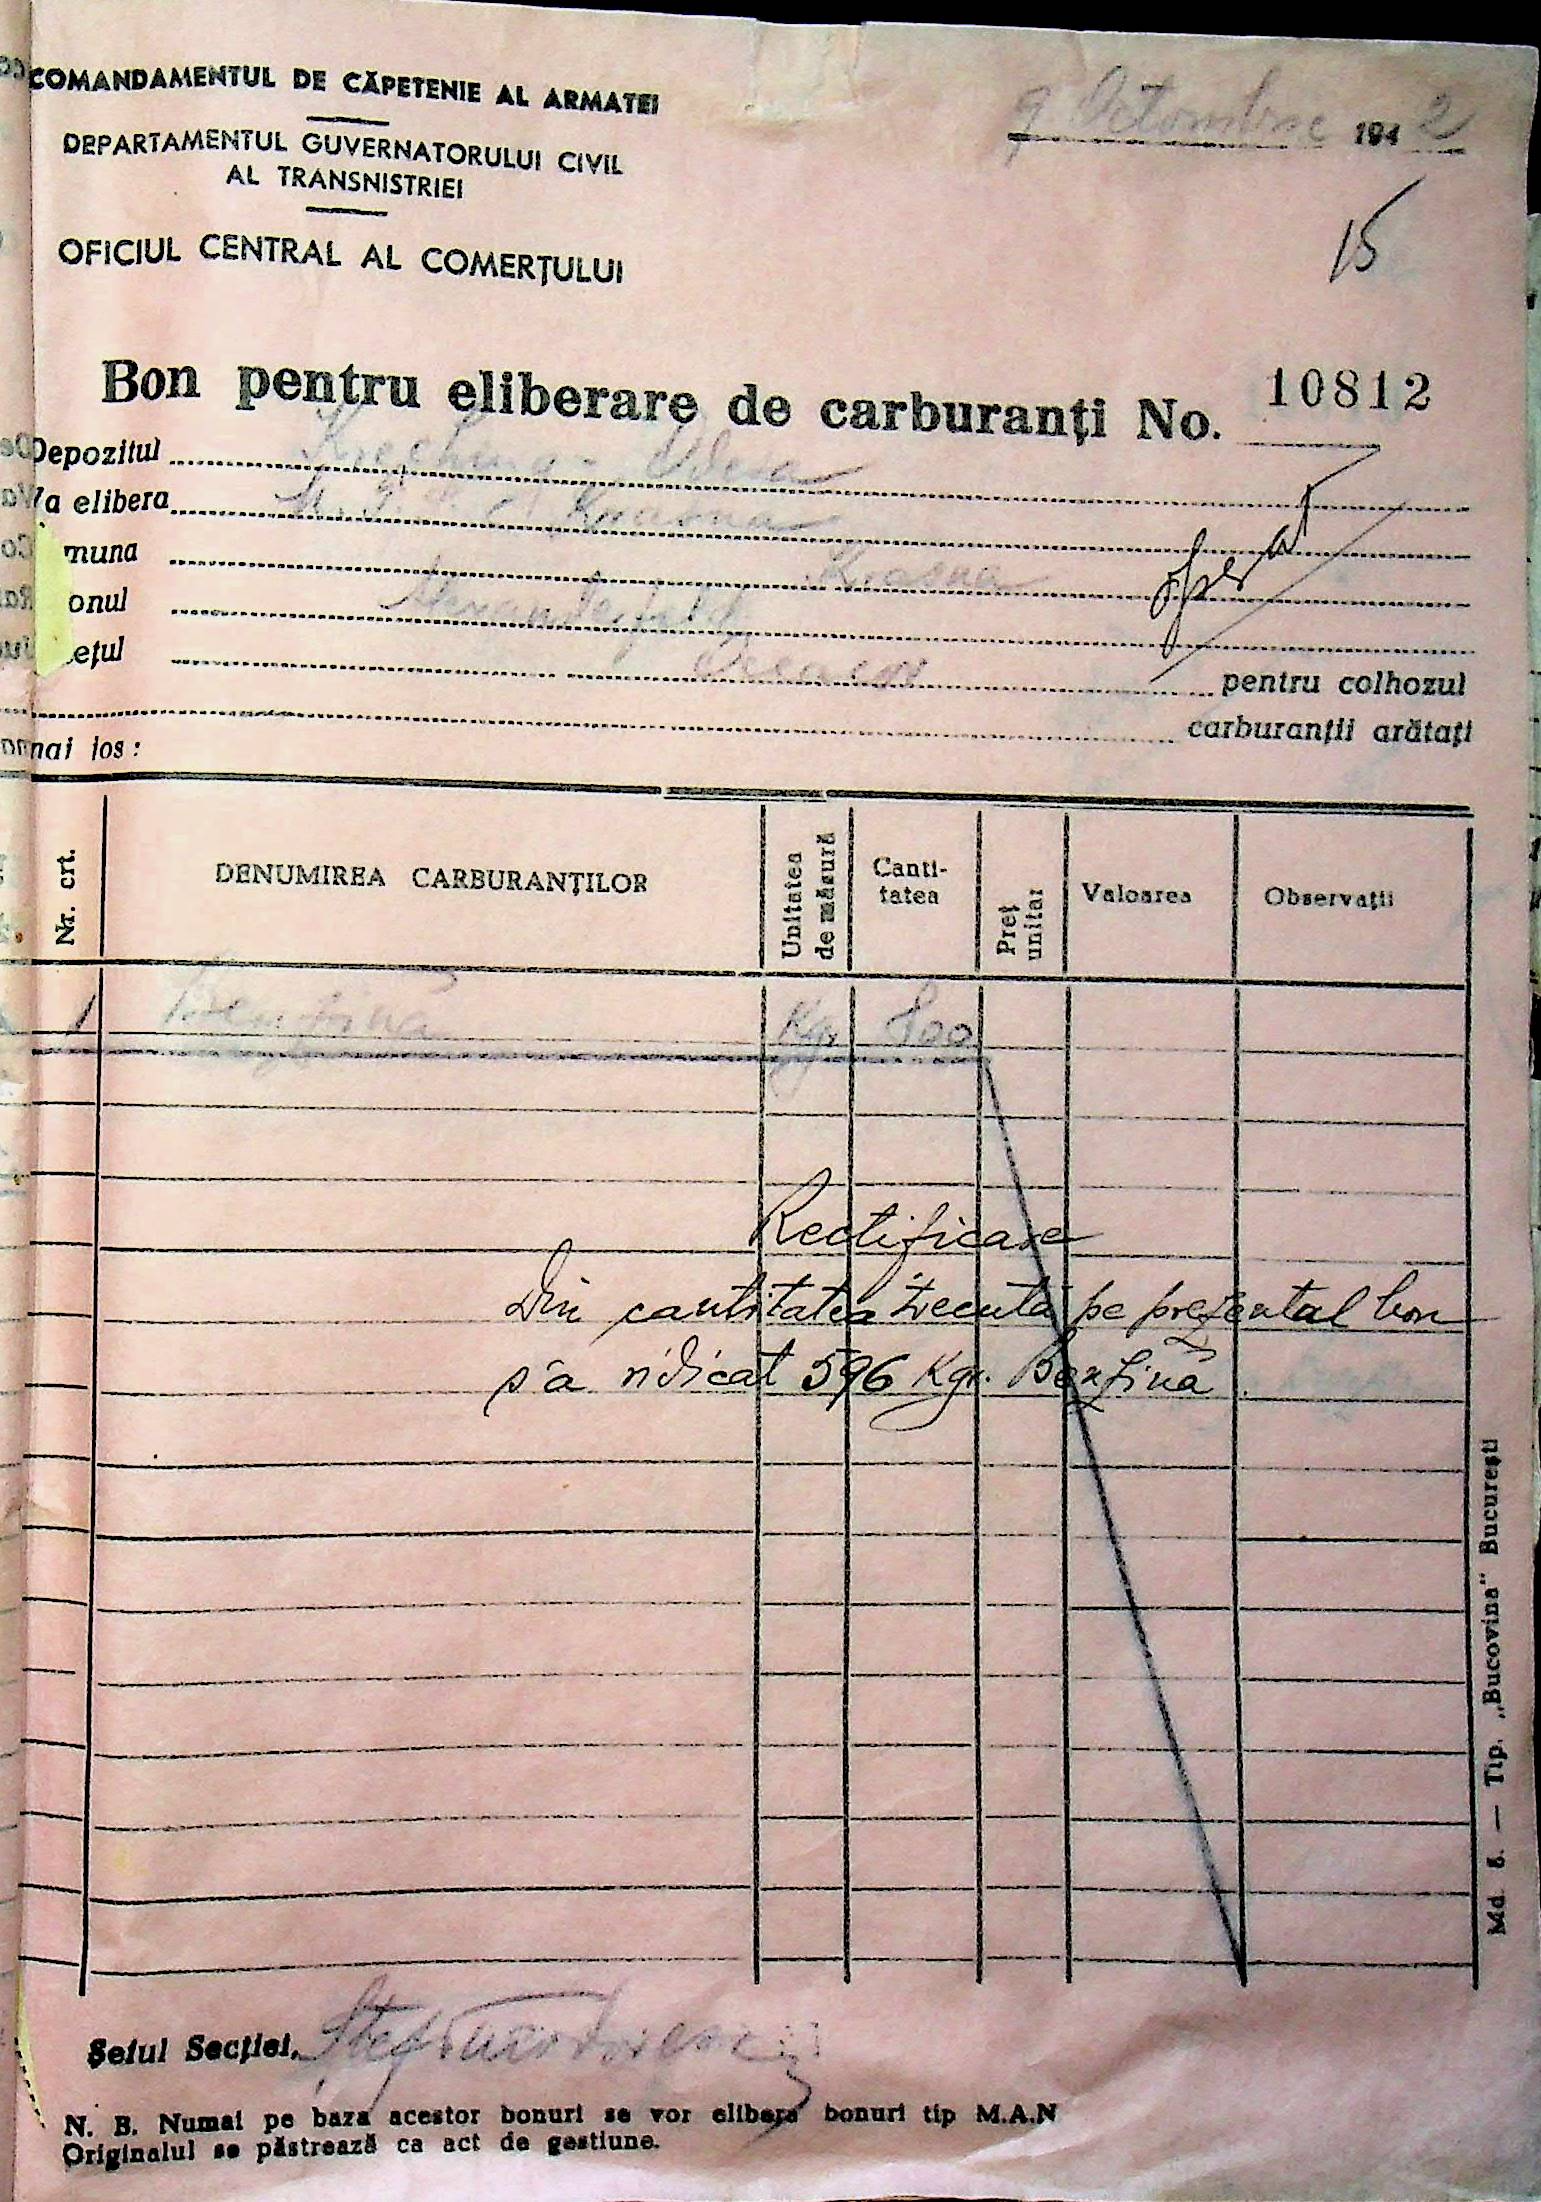 COMANDAMENTUL DE CĂPETENIE AL ARMATEI
DEPARTAMENTUL GUVERNATORULUI CIVIL
AL TRANSNISTRIEI
OFICIUL CENTRAL AL COMERȚULUI
9 Octombrie 1942
15
Bon pentru eliberare de carburanți No. 10812
Depozitul Odesa
Va elibera Krasna
muna Krasna
onul
ețul pentru colhozul
carburanții arătați
mai jos :
Nr. crt. DENUMIREA CARBURANȚILOR Unitatea de măsură Canti-tatea Preț unitar Valoarea Observații
1 Benzină Kgr. 800
Rectificare
Din cantitatea trecută pe prezentul bon
s'a ridicat 596 Kgr. Benzină.
Șeful Secției,
N. B. Numai pe baza acestor bonuri se vor elibera bonuri tip M.A.N
Originalul se păstrează ca act de gestiune.
Md. 5. — Tip. „Bucovina" București